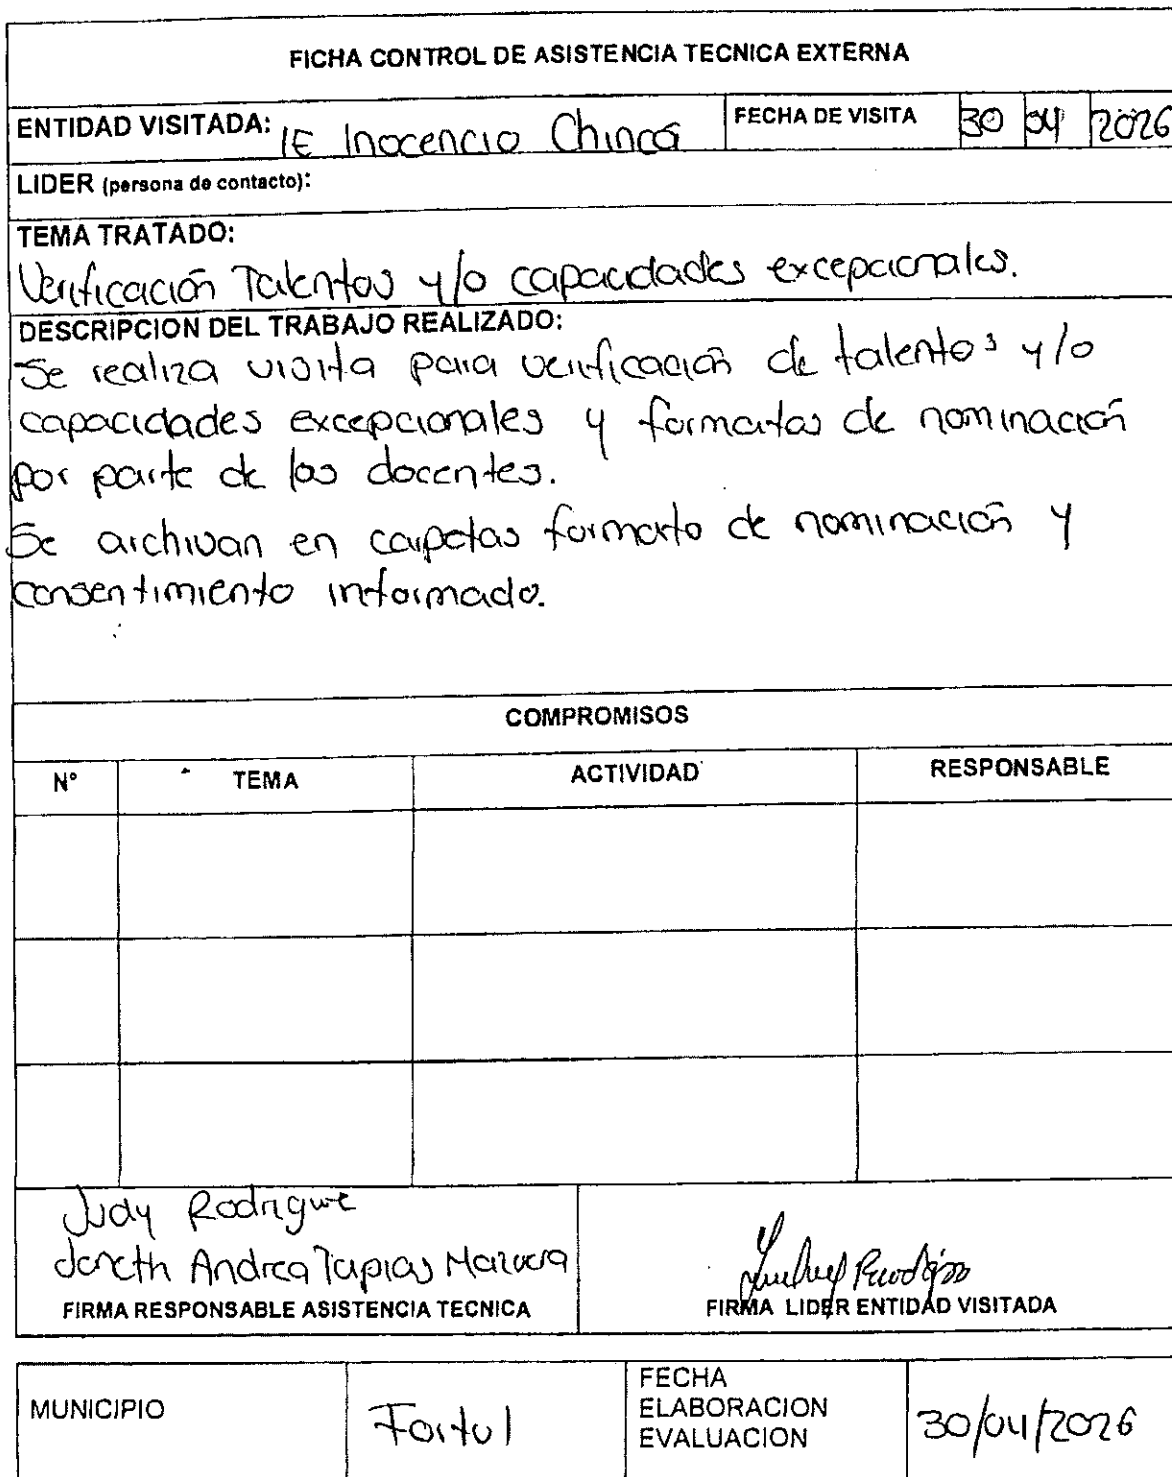 FICHA CONTROL DE ASISTENCIA TECNICA EXTERNA
ENTIDAD VISITADA: IE Inocencio Chincá FECHA DE VISITA 30 04 2026
LIDER (persona de contacto):
TEMA TRATADO:
Verificación Talentos y/o capacidades excepcionales.
DESCRIPCION DEL TRABAJO REALIZADO:
Se realiza visita para verificación de talentos y/o
capacidades excepcionales y formatos de nominación
por parte de los docentes.
Se archivan en carpetas formato de nominación y
consentimiento informado.
COMPROMISOS
N° TEMA ACTIVIDAD RESPONSABLE
Judy Rodrigue
Janeth Andrea Tapias
FIRMA RESPONSABLE ASISTENCIA TECNICA FIRMA LIDER ENTIDAD VISITADA
MUNICIPIO Fortul FECHA
ELABORACION
EVALUACION 30/04/2026